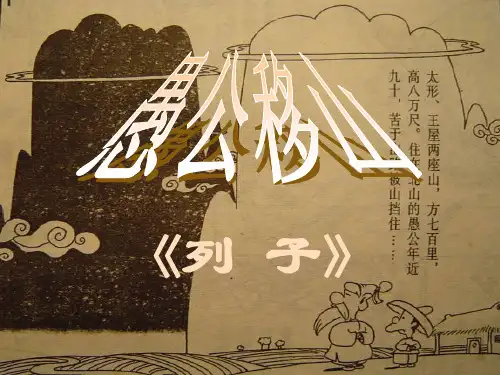 愚公移山
太形、王屋两座山，方七百里，
高八万尺。住在北山的愚公年近
九十，苦于被山挡住……
《列 子》